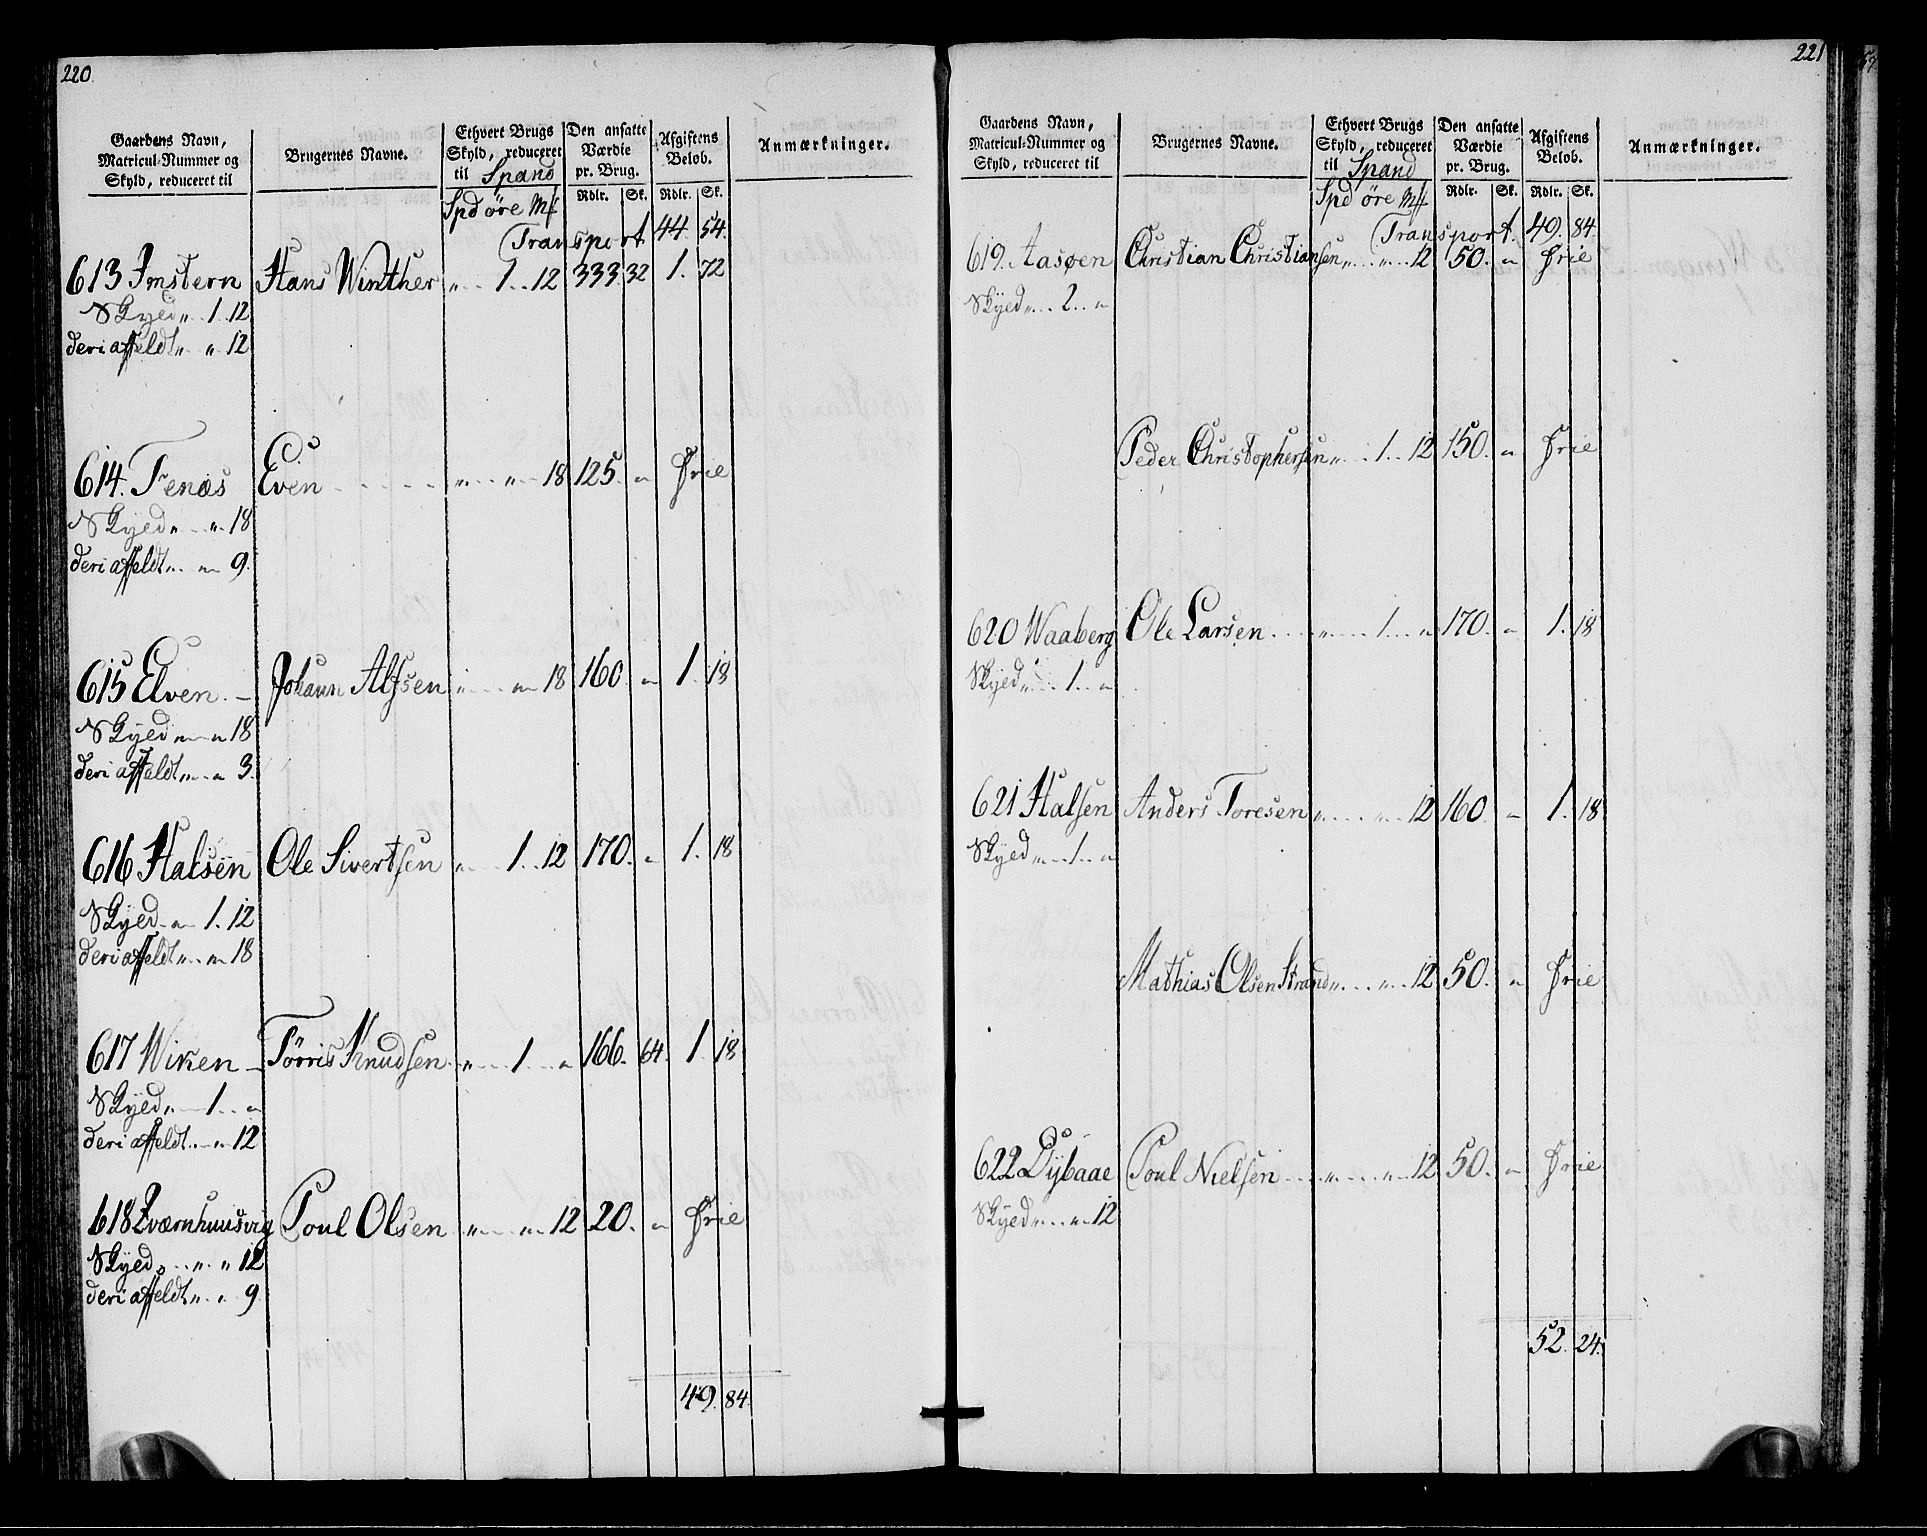 220.
Gaardens Navn, Matricul-Nummer og Skyld, reduceret til
Brugernes Navne.
Ethvert Brugs Skyld, reduceret til Spand
Den ansatte Værdie pr. Brug.
Afgiftens Beløb.
Anmærkninger.
Spd øre Mſ Rdlr. Sk. Rdlr. Sk.
Transport 44. 54.
613 Imstern Hans Winther „ . . 1 . . 12 333. 32 1. 72
Skyed „ . 1 . 12
deri affeldt „ „ 12
614. Fenæs Even . . . . . „ . . „ . . 18 125. „ Frie
Skyed „ . . „ . 18
deri affeldt „ . . „ 9.
615 Elven. — Johann Alfsen „ . . . „ 18 160. „ 1. 18
Skyed „ . . „ 18
deri affeldt „ . . „ 3.
616 Halsen Ole Sivertsen „ . . . 1 . . 12 170. „ 1. 18
Skyed „ 1. 12
deri affeldt „ . „ 18
617 Wiken — Tørris Knudsen „ . . . 1 . . . „ 166. 64. 1. 18
Skyed „ . 1 . . „
deri affeldt . . „ 12
618 Zværnhuusvig Poul Olsen „ . . . „ 12 20. „ Frie
Skyed „ . . „ . „ 12
deri affeldt „ . „ 9
49. 84.
221
Gaardens Navn, Matricul-Nummer og Skyld, reduceret til
Brugernes Navne.
Ethvert Brugs Skyld, reduceret til Spand
Den ansatte Værdie pr. Brug.
Afgiftens Beløb.
Anmærkninger.
Spd øre Mſ Rdlr. Sk. Rdlr. Sk.
Transport. 49. 84.
619. Aasøen Christian Christiansen „ . . . „ . . 12 50. „ Frie
Skyed „ . . 2 . . „
Peder Christophersen „ . . 1 . . 12 150. „ Frie
620 Waaberg Ole Larsen . . . . „ . . . 1 . . . „ 170. „ 1. 18
Skyed „ . . . 1 . . „
621 Halsen Anders Toresen „ . . . . „ . . 12 160. „ 1. 18
Skyed „ . . 1 . . „
Mathias Olsen Strand „ . . . „ . . 12 50. „ Frie
622 Dybaae Poul Nielsen . . . „ . . . „ . 12 50. „ Frie
Skyed „ . . . „ 12
52. 24.